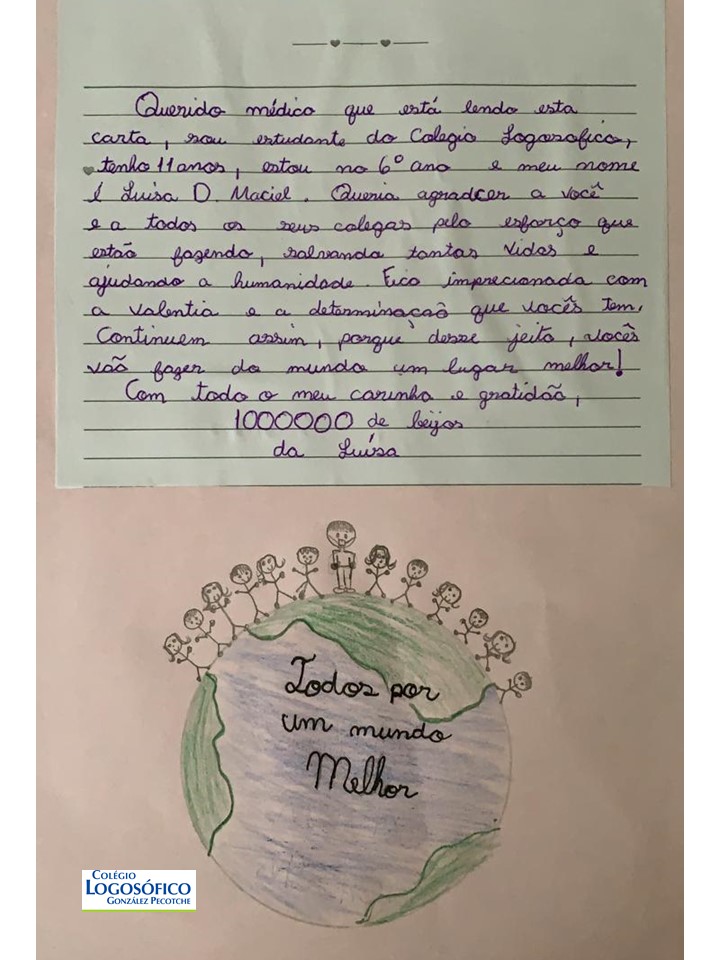 Querido médico que está lendo esta
carta, sou estudante do Colegio Logosofico,
tenho 11 anos, estou no 6º ano e meu nome
é Luisa D. Maciel. Queria agradcer a você
e a todos os seus colegas pelo esforço que
estão fazendo, salvando tantas vidas e
ajudando a humanidade. Fico imprecionada com
a valentia e a determinação que vocês tem.
Continuem assim, porque desse jeito, vocês
vão fazer do mundo um lugar melhor!
Com todo o meu carinho e gratidão,
1000000 de beijos
da Luísa
Todos por
um mundo
Melhor
COLÉGIO
LOGOSÓFICO
GONZÁLEZ PECOTCHE